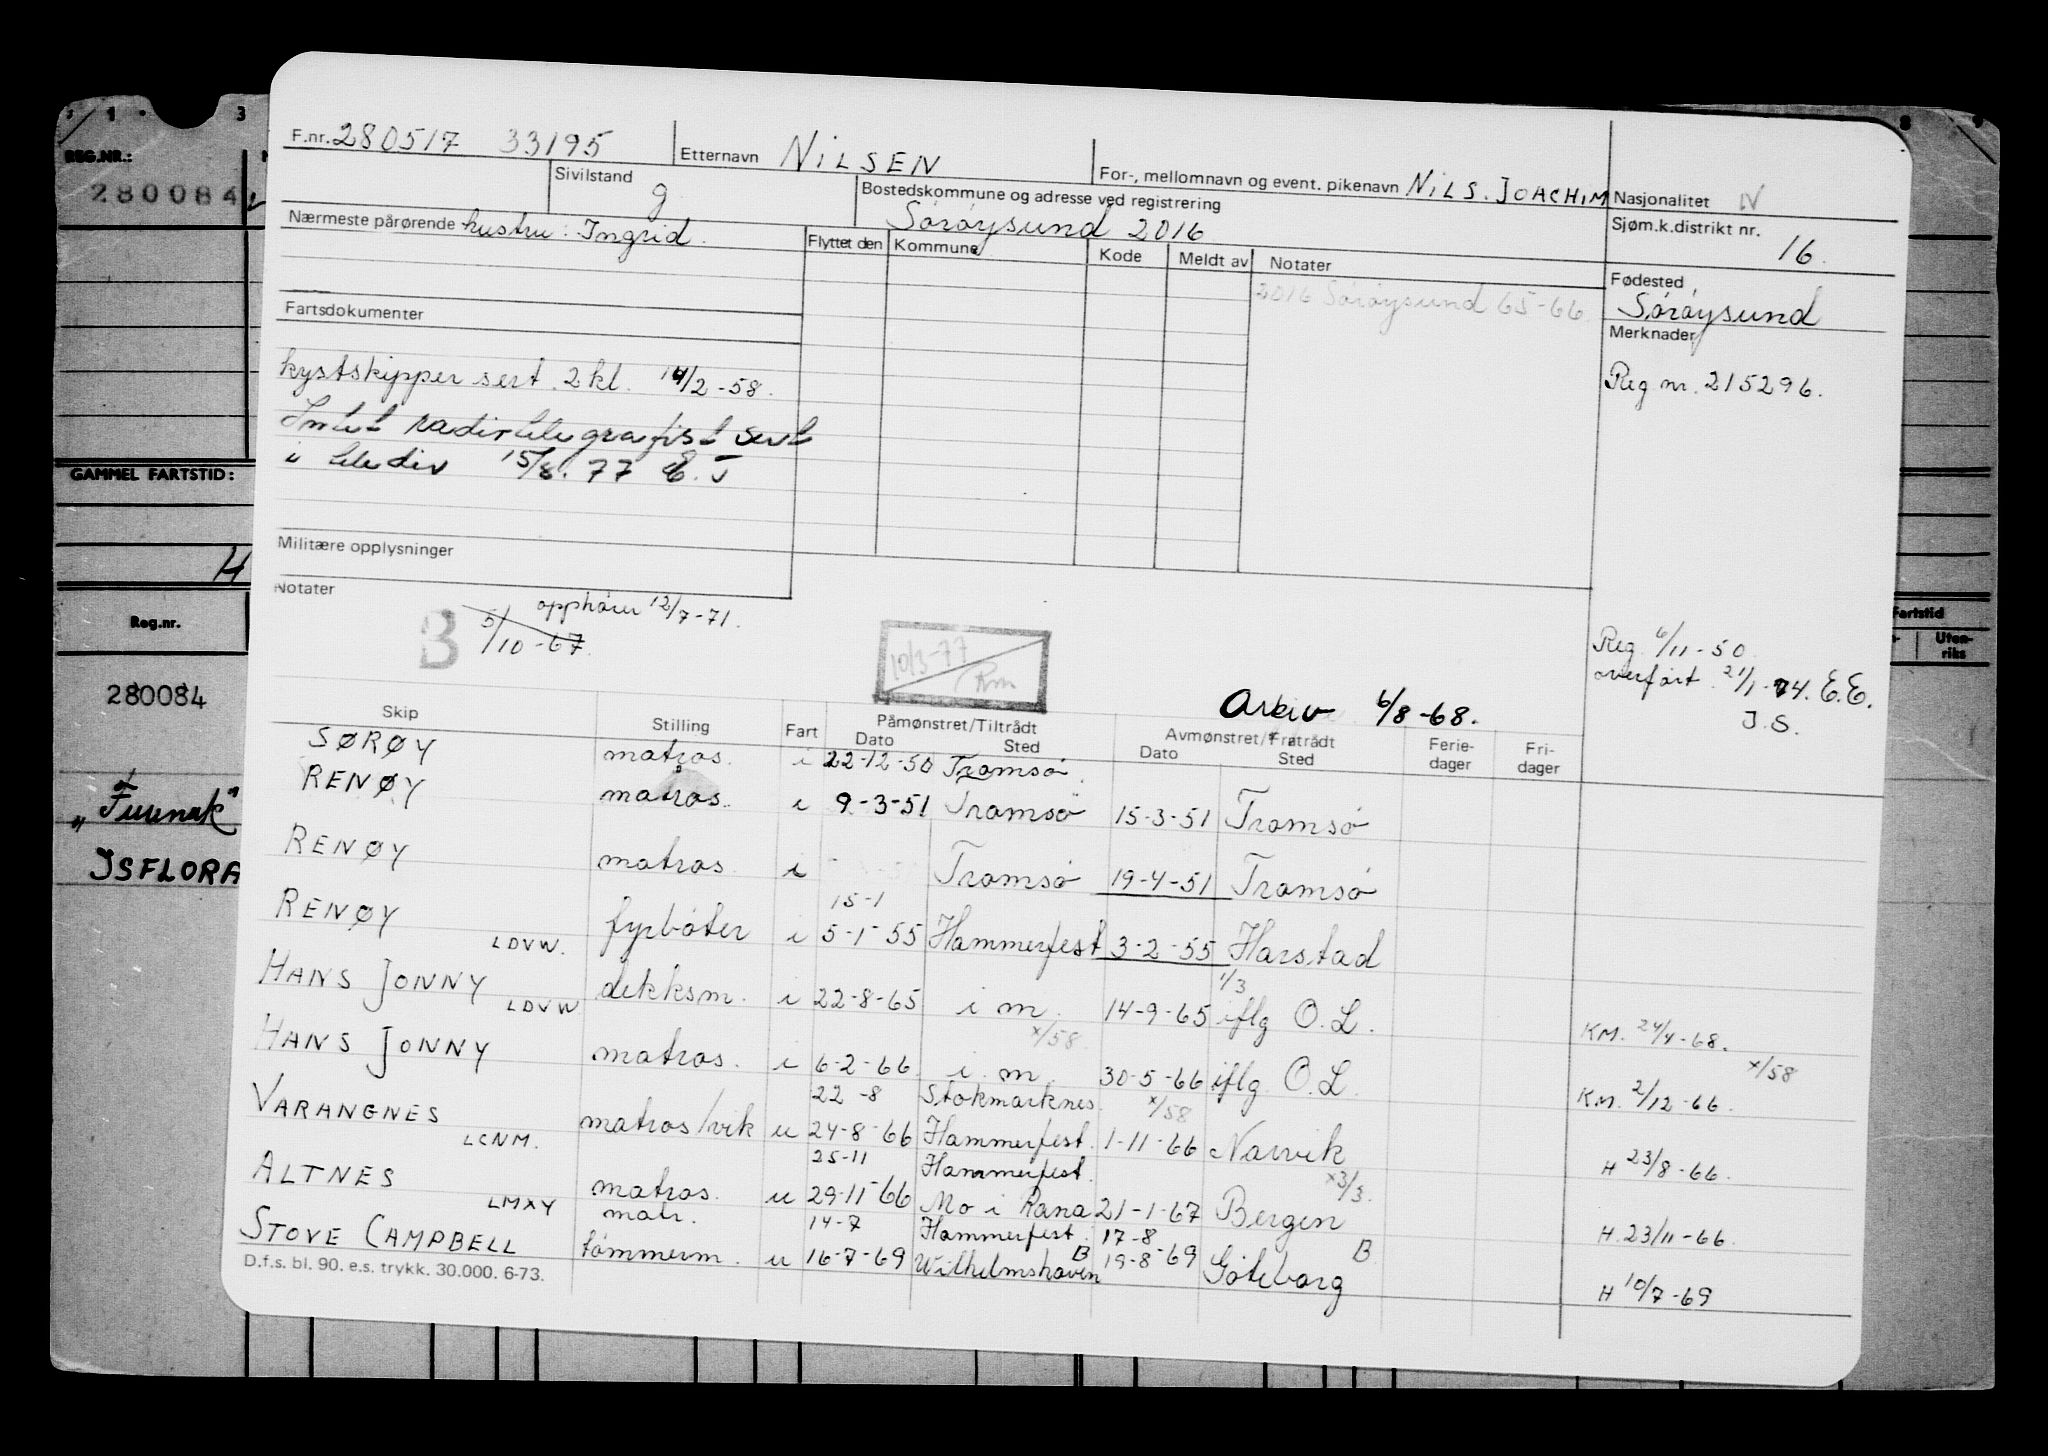 1 3 8 9
REG.NR.:
280084
GAMMEL FARTSTID:
H
Reg.nr.
280084
"Furenak"
ISFLORA
Fartstid
Uten-
riks
F.nr. 280517 33195 Etternavn NILSEN For-, mellomnavn og event. pikenavn NILS. JOACHIM Nasjonalitet N
Sivilstand g Bostedskommune og adresse ved registrering Sørøysund 2016 Sjøm.k.distrikt nr. 16.
Nærmeste pårørende hustru: Ingrid.
Flyttet den Kommune Kode Meldt av Notater
2016 Sørøysund 65-66
Fødested Sørøysund
Merknader
Reg nr. 215296.
Fartsdokumenter
kystskipper sert. 2kl. 14/2-58.
Intet radiotelegrafist sert
i telediv 15/8. 77 E.J
Militære opplysninger
Notater
B 5/10-67. opphører 12/7-71.
10/3-77
Arkiv 6/8-68.
Reg. 6/11-50.
overført 21/1-74. E.E.
J.S.
Skip Stilling Fart Påmønstret/Tiltrådt Dato Sted Avmønstret/Fratrådt Dato Sted Ferie- dager Fri- dager
SØRØY matros. i 22-12-50 Tromsø.
RENØY matros. i 9-3-51 Tromsø 15-3-51 Tromsø
RENØY matros i Tromsø 19-4-51 Tromsø
15-1
RENØY fyrbøter i 5-1-55 Hammerfest 3-2-55 Harstad
LDVW. 1/3
HANS JONNY dekksm. i 22-8-65 i m. 14-9-65 iflg O.L. KM. 24/4-68.
LDVW x/58 x/58
HANS JONNY matros. i 6-2-66 i.m. 30-5-66 iflg. O.L. KM. 2/12-66.
22-8 Stokmarknes. x/58
VARANGNES matros/vik u 24-8-66 Hammerfest. 1-11-66 Narvik H 23/8-66.
LCNM. 25-11 Hammerfest. x3/3.
ALTNES matros. u 29-11-66 Mo i Rana 21-1-67 Bergen H. 23/11-66.
LMXY matr. 14-7 Hammerfest. 17-8
STOVE CAMPBELL tømmerm. u 16-7-69 Wilhelmshaven B 19-8-69 Göteborg B H 10/7-69
D.f.s. bl. 90. e.s. trykk. 30.000. 6-73.